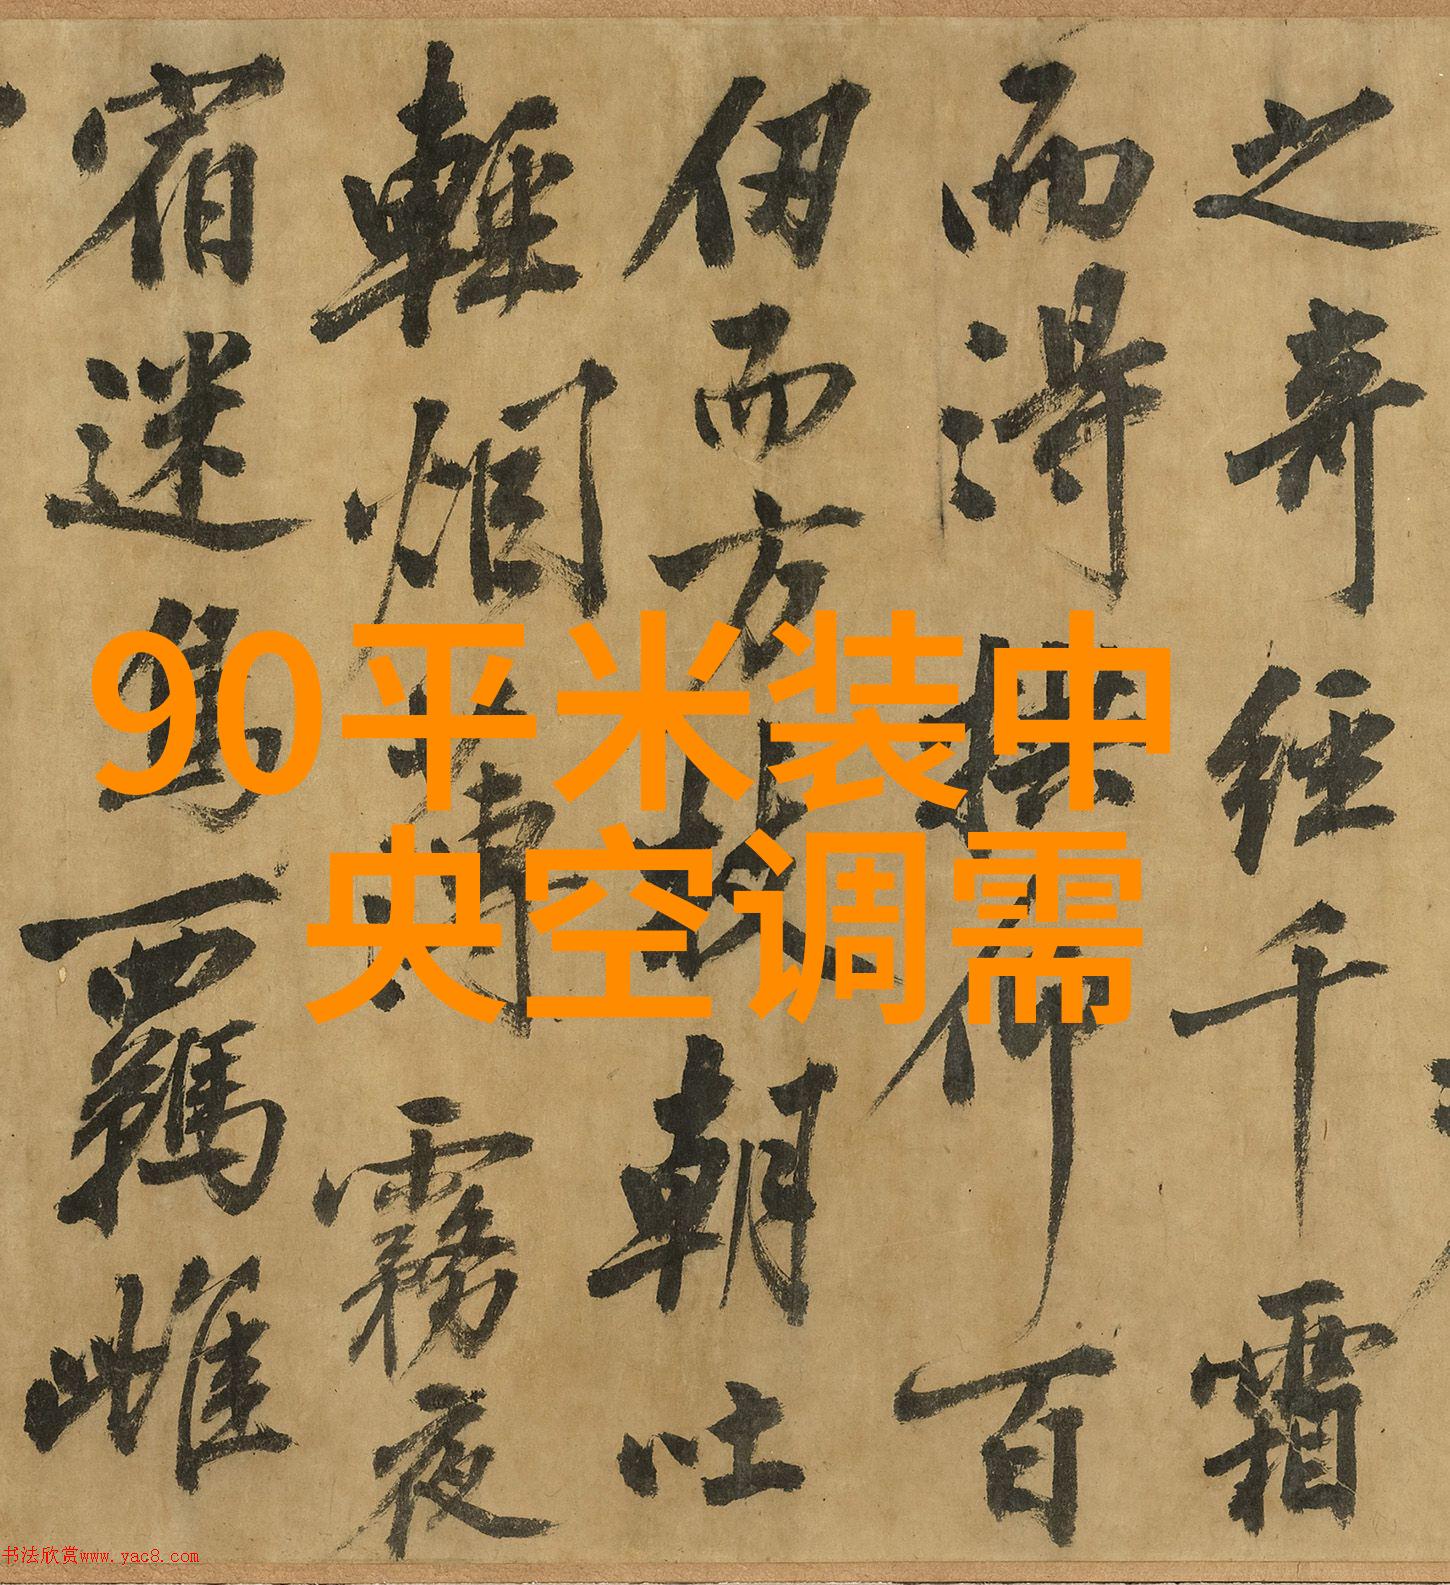 90平米装中
央空调需
之奇經千霜
而得仰百
伊而方故朝吐
輕烟薄霧夜
宿迷鳥羈雌
书法欣赏www.yac8.com